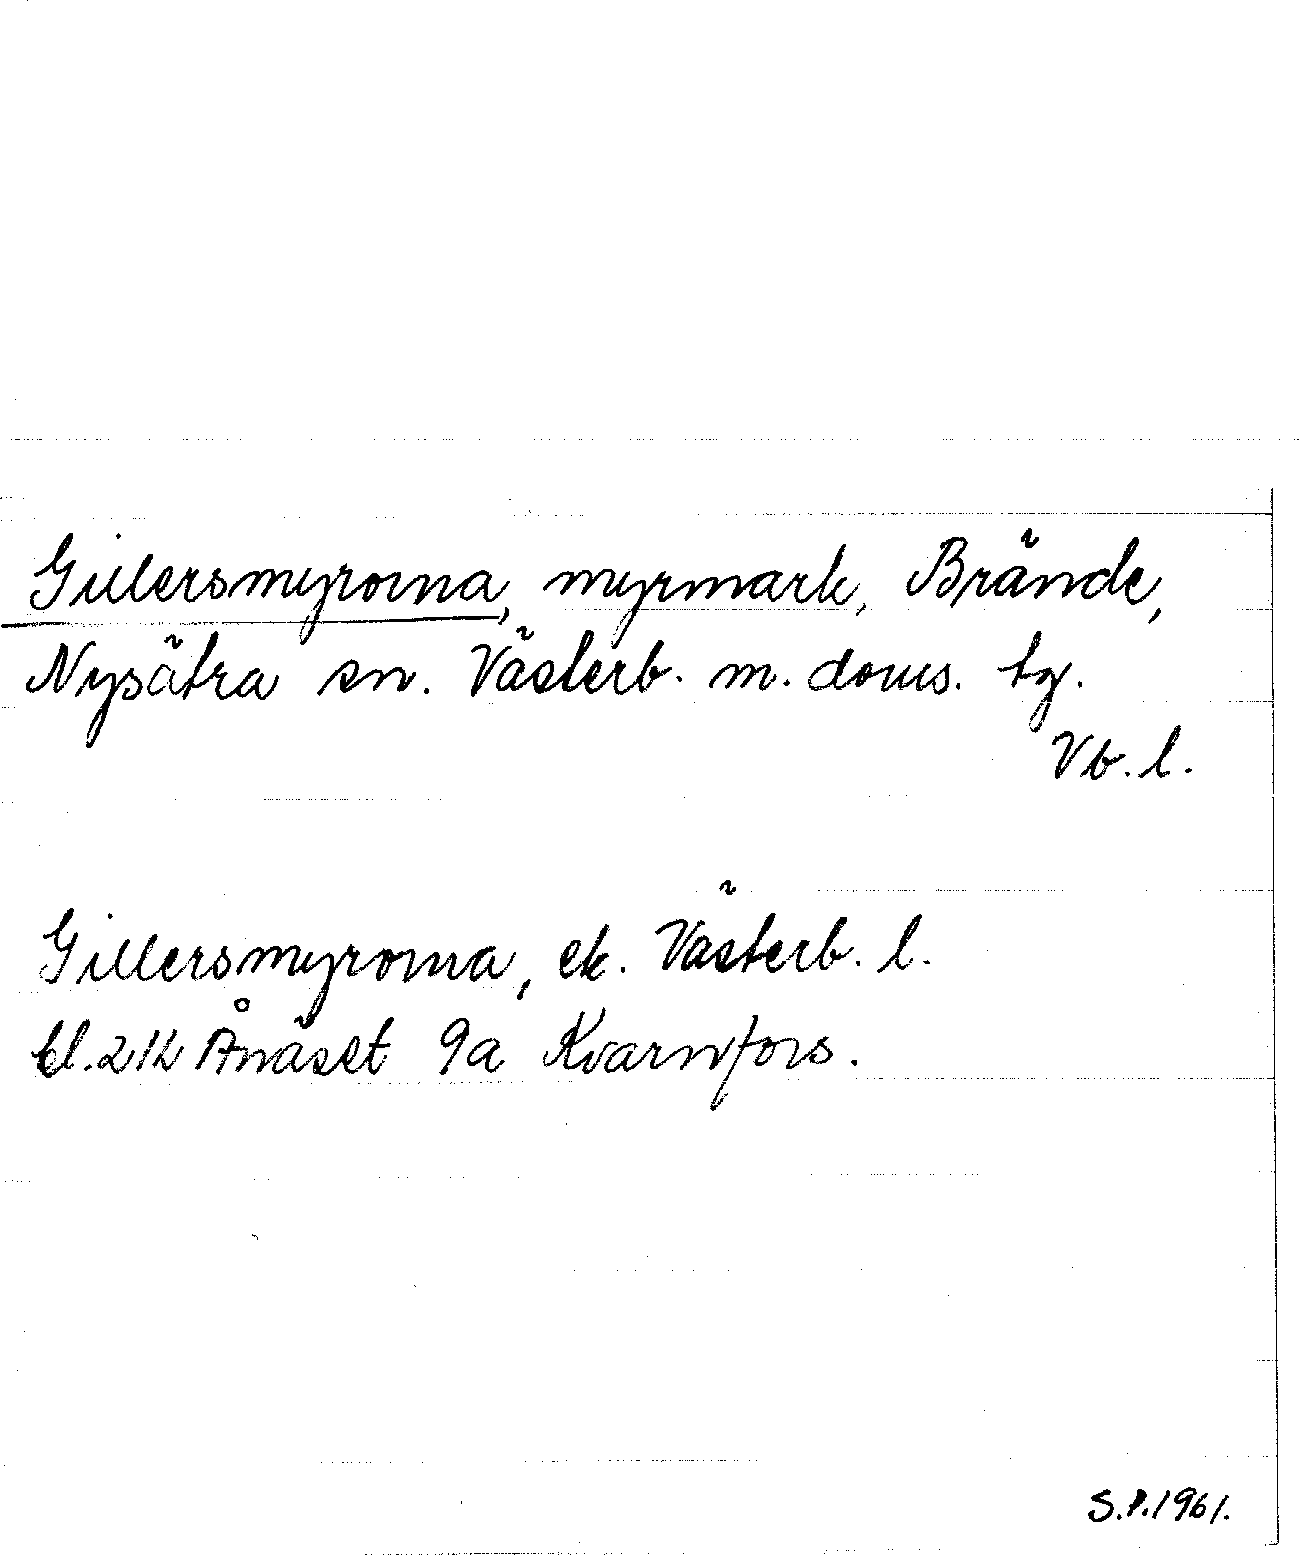 Gillersmyrorna, myrmark, Brände,
Nysätra sn. Västerb. m. doms. tg.
Vb. l.
Gillersmyrorna, ek. Västerb. l.
bl. 21K Ånäset 9a Kvarnfors.
S.P. 1961.